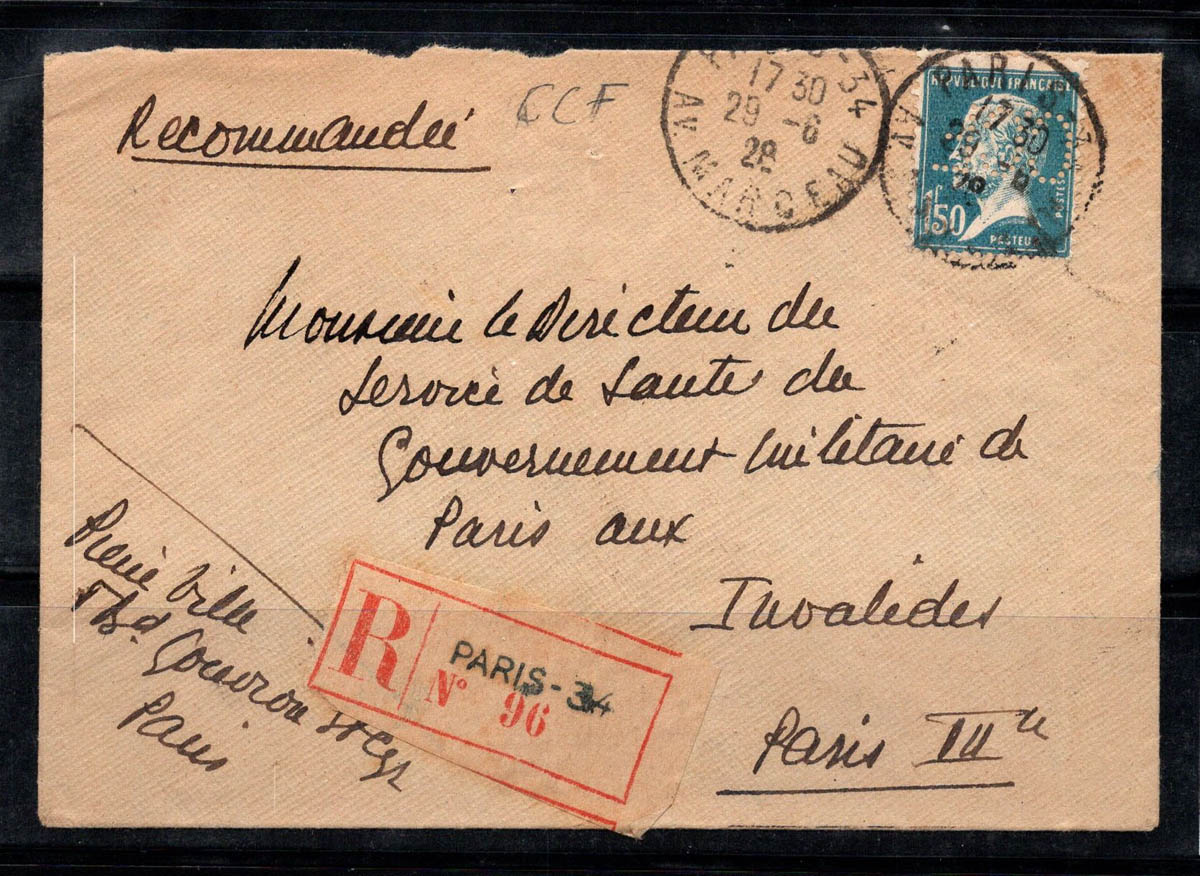 Recommandée
CCF
PARIS-34
17 30
29 -6
28
AV MARCEAU
PARIS-34
17 30
29 -6
28
AV
REPUBLIQUE FRANÇAISE
1F50
PASTEUR
POSTES
Monsieur le Directeur du
Service de Santé du
Gouvernement Militaire de
Paris aux
Invalides
Paris VIIe
René Ville
5 Bd Gouvion St Cyr
Paris
R
PARIS-34
N° 96